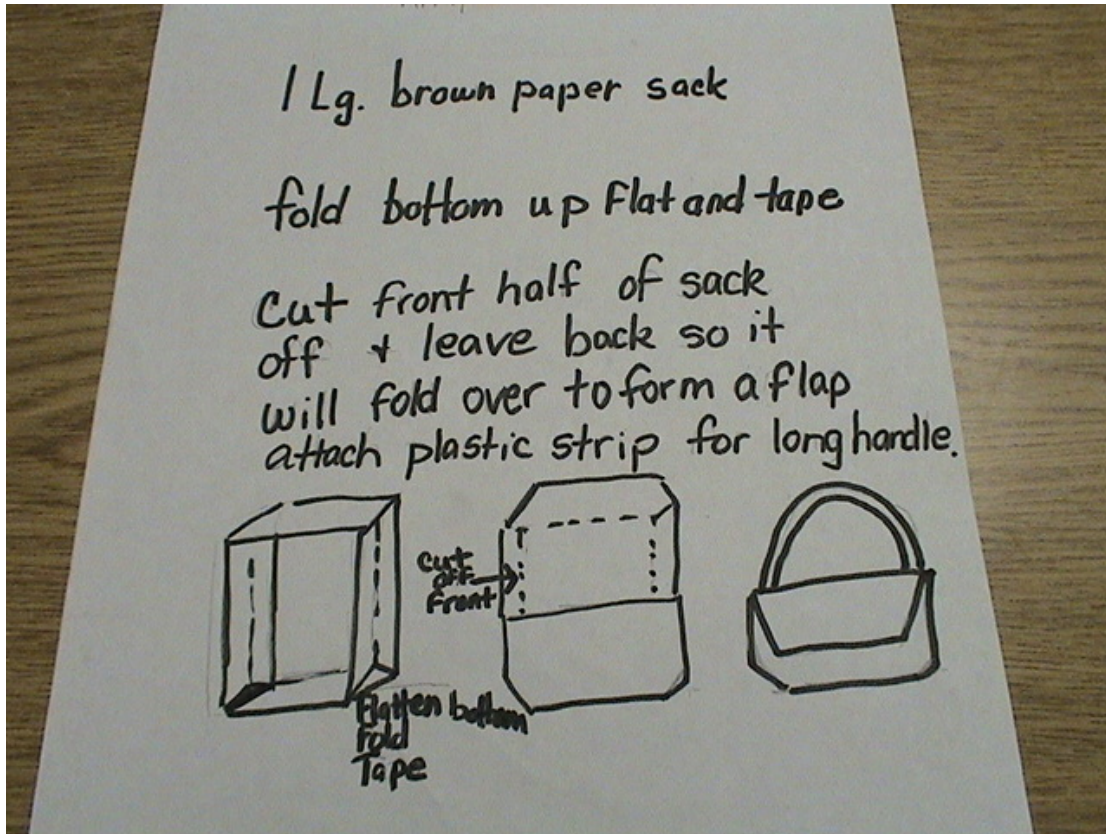 1 Lg. brown paper sack
fold bottom up Flat and tape
Cut front half of sack
off & leave back so it
will fold over to form a flap
attach plastic strip for long handle.
Cut
off
front
Flatten bottom
Fold
Tape